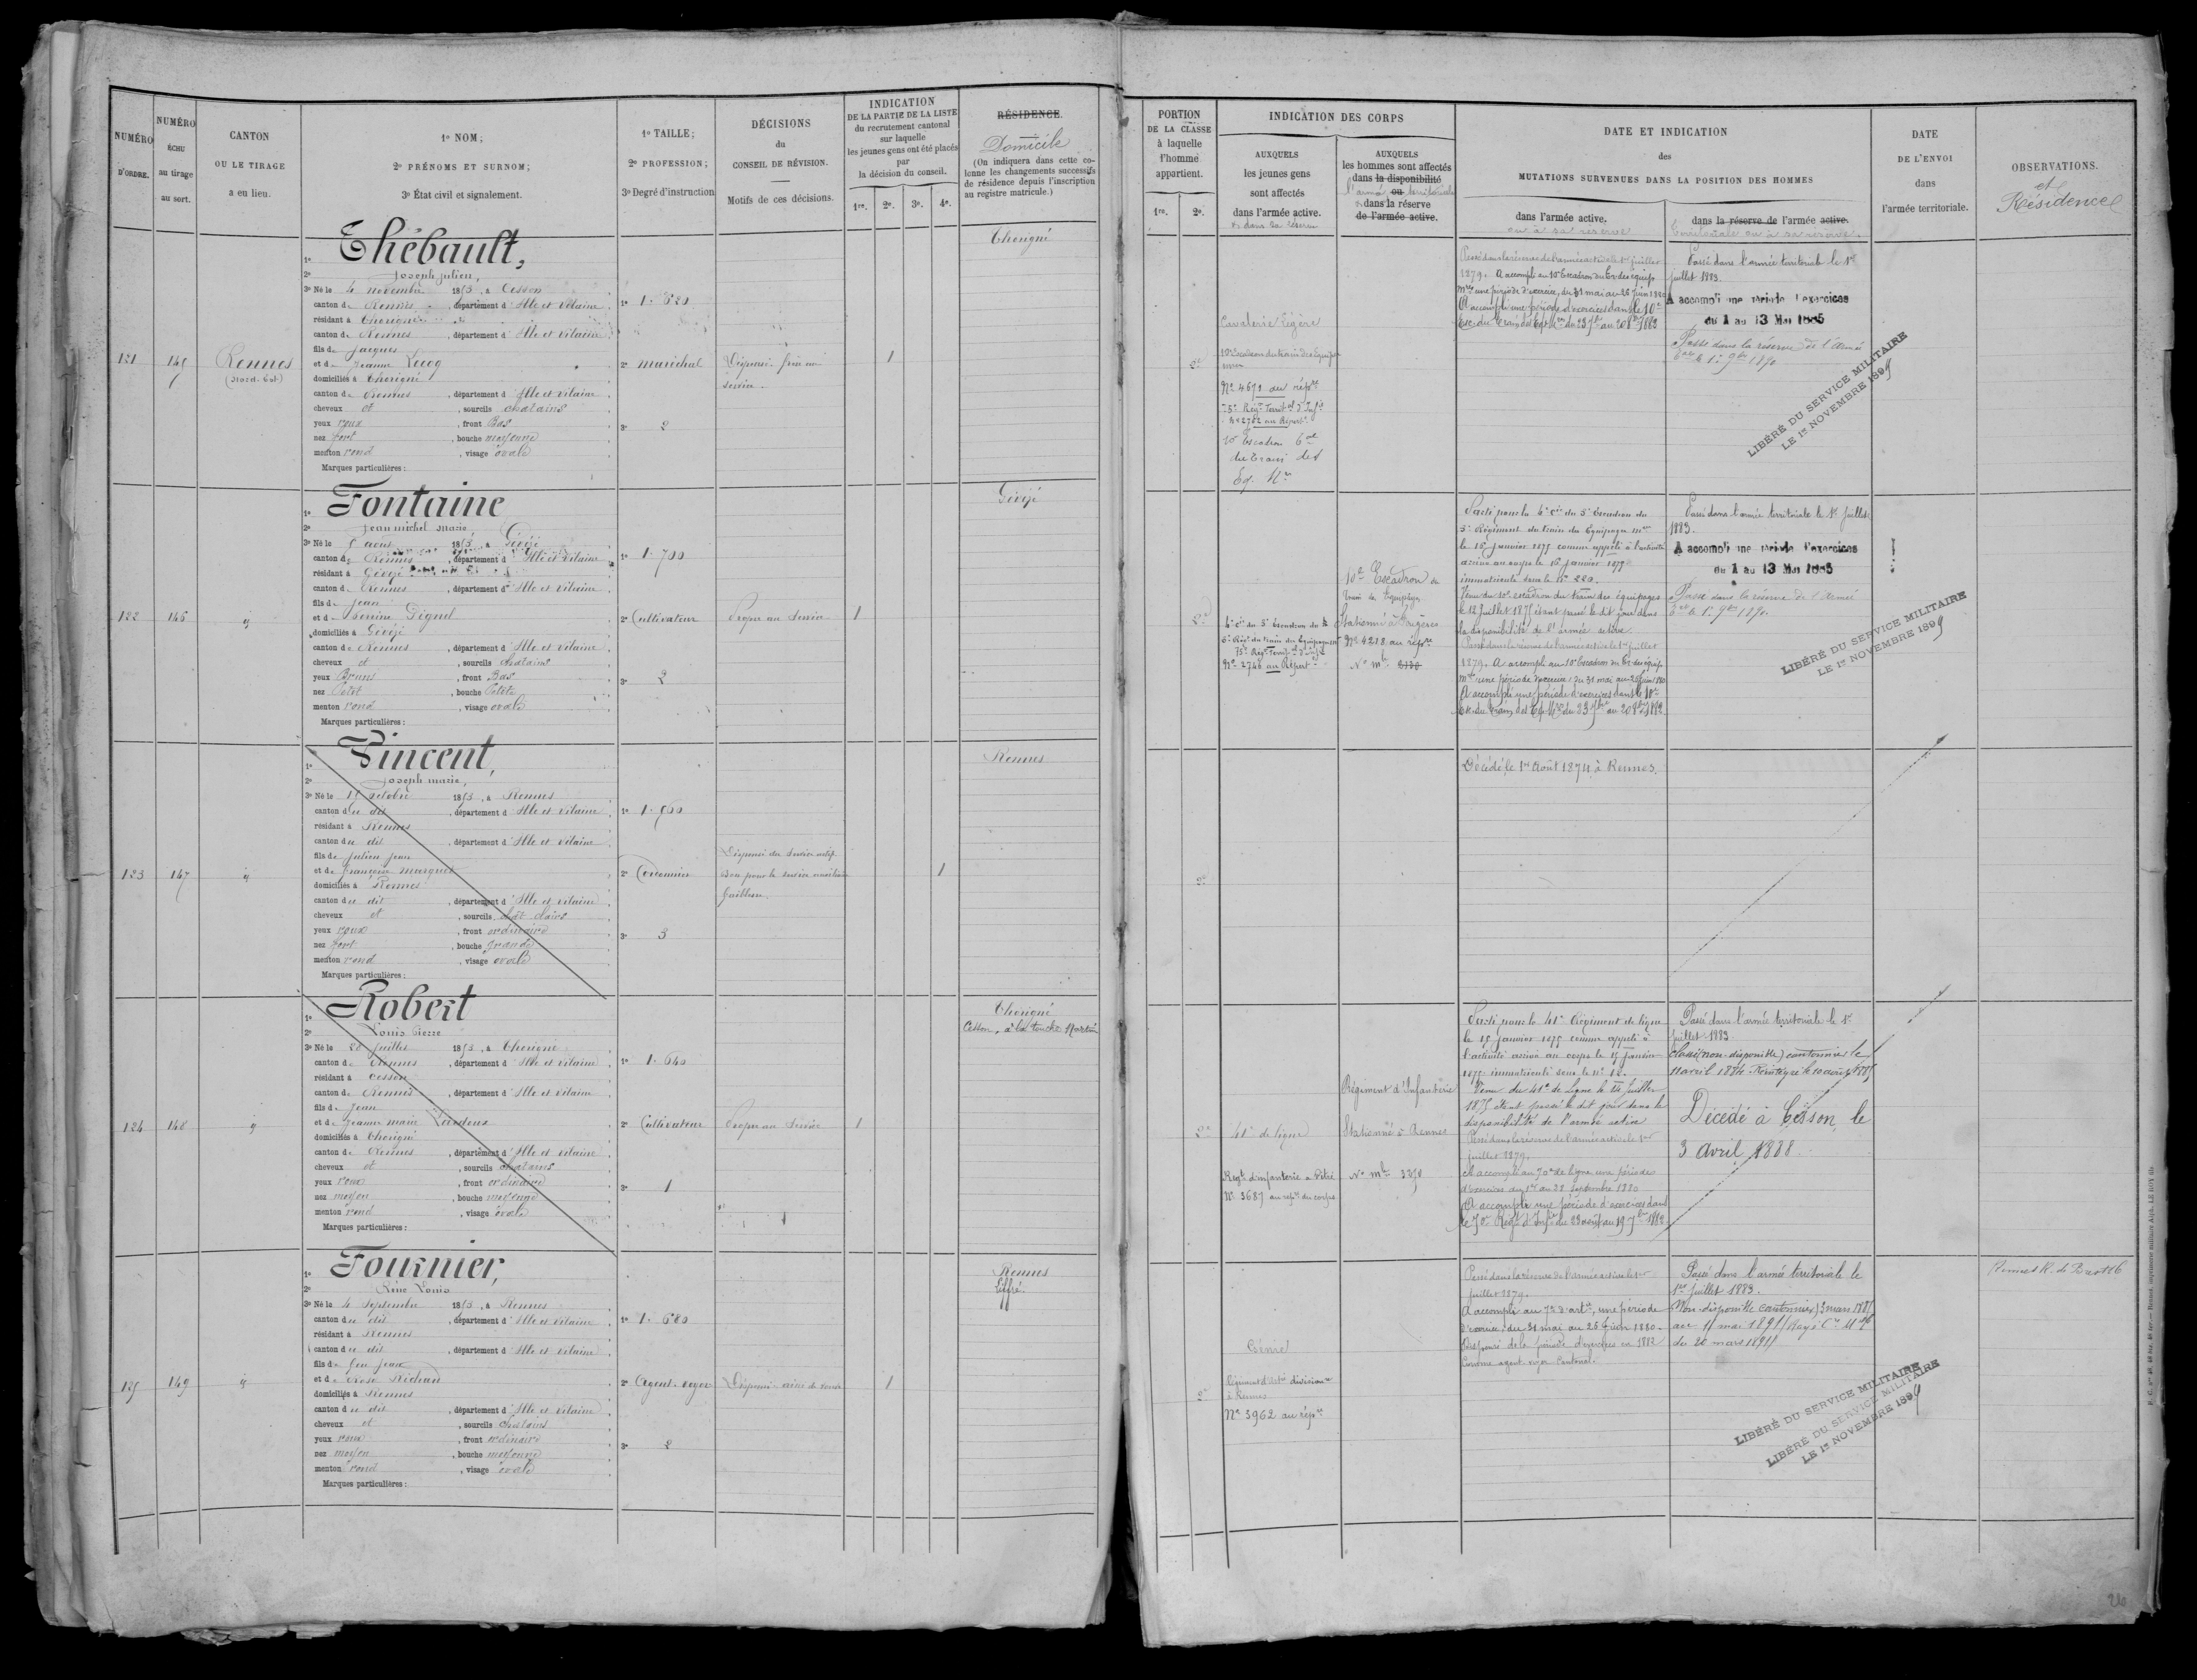 NUMÉRO D'ORDRE.
NUMÉRO ÉCHU au tirage au sort.
CANTON OU LE TIRAGE a eu lieu.
1º NOM;
2º PRÉNOMS ET SURNOM;
3º État civil et signalement.
1º TAILLE;
2º PROFESSION;
3º Degré d'instruction
DÉCISIONS du CONSEIL DE RÉVISION.
Motifs de ces décisions.
INDICATION
DE LA PARTIE DE LA LISTE
du recrutement cantonal
sur laquelle
les jeunes gens ont été placés
par
la décision du conseil.
1re. 2e. 3e. 4e.
RÉSIDENCE.
Domicile
(On indiquera dans cette co-
lonne les changements successifs
de résidence depuis l'inscription
au registre matricule.)
Thébault,
Joseph Julien,
3º Né le 4 novembre 1853, à Cesson
canton de Rennes, département d'Ille et Vilaine
résidant à Thorigné
canton de Rennes, département d'Ille et Vilaine
fils de Jacques
et de Jeanne Lecoq
domiciliés à Thorigné
canton de Rennes, département d'Ille et Vilaine
cheveux et, sourcils chatains
yeux roux, front Bas
nez fort, bouche moyenne
menton rond, visage ovale
Marques particulières:
121
145
Rennes
(Nord-Est)
1º 1.620
2º maréchal
3º 2
Dispensé frère au
service.
1
Thorigné
Fontaine
Jean Michel Marie
3º Né le 5 août 1853, à Gévezé
canton de Rennes, département d'Ille et Vilaine
résidant à Gévezé
canton de Rennes, département d'Ille et Vilaine
fils de Jean
domiciliés à Gévezé
canton de Rennes, département d'Ille et Vilaine
cheveux et, sourcils chatains
yeux Bruns, front Bas
nez Petit, bouche Petite
menton rond, visage ovale
Marques particulières:
122
146
1º 1.700
2º Cultivateur
3º 2
Propre au Service
1
Gévezé
Vincent,
Joseph Marie,
3º Né le octobre 1853, à Rennes
canton du dit, département d'Ille et Vilaine
résidant à Rennes
canton du dit, département d'Ille et Vilaine
fils de Julien Jean
et de Françoise Marques
domiciliés à Rennes
canton du dit, département d'Ille et Vilaine
cheveux et, sourcils chât clairs
yeux roux, front ordinaire
nez fort, bouche grande
menton rond, visage ovale
Marques particulières:
123
147
2º Cordonnier
3º 3
Dispensé du Service actif
Bon pour le service auxiliaire
faiblesse.
1
Rennes
Robert
Louis Pierre
3º Né le 28 Juillet 1853, à Thorigné
canton de Rennes, département d'Ille et Vilaine
résidant à Cesson
canton de Rennes, département d'Ille et Vilaine
fils de Jean
et de Jeanne Marie
domiciliés à Thorigné
canton de Rennes, département d'Ille et Vilaine
cheveux et, sourcils chatains
yeux roux, front ordinaire
nez moyen, bouche moyenne
menton rond, visage ovale
Marques particulières:
124
148
1º 1.640
2º Cultivateur
3º 1
Propre au Service
1
Thorigné
Cesson, à la touche Martin
Fournier,
Réné Louis
3º Né le 4 Septembre 1853, à Rennes
canton du dit, département d'Ille et Vilaine
résidant à Rennes
canton du dit, département d'Ille et Vilaine
fils de feu Jean
et de Rose Richard
domiciliés à Rennes
canton du dit, département d'Ille et Vilaine
cheveux et, sourcils chatains
yeux roux, front ordinaire
nez moyen, bouche moyenne
menton rond, visage ovale
Marques particulières:
125
149
1º 1.680
2º Agent-voyer
3º 2
Dispensé aîné de veuve
1
Rennes
Liffré.
PORTION
DE LA CLASSE
à laquelle
l'homme
appartient.
1re. 2e.
INDICATION DES CORPS
AUXQUELS
les jeunes gens
sont affectés
dans l'armée active.
et dans sa réserve
AUXQUELS
les hommes sont affectés
dans la disponibilité
l'armée ou territoriale
dans la réserve
de l'armée active.
DATE ET INDICATION
des
MUTATIONS SURVENUES DANS LA POSITION DES HOMMES
dans l'armée active.
ou à sa réserve
dans la réserve de l'armée active.
Territoriale ou à sa réserve.
DATE
DE L'ENVOI
dans
l'armée territoriale.
OBSERVATIONS.
et
Résidence
2e
Cavalerie légère
10e Escadron du train des Equipages
Nº 4671 au répre
75e Régt Territal d'Infie
Nº 2762 au Répert.
10e Escadron
du train des
Eq. Mres
Passé dans la réserve de l'armée active le 1er juillet
1879. A accompli au 10e Escadron du tr. des équip.
mres une période d'exercice, du 31 mai au 26 Juin 1880
A accompli une période d'exercices dans le 10e
Esc. du train des Eq. Mres du 23 7bre au 20 8bre 1882
Passé dans l'armée territoriale le 1er
juillet 1883.
A accompli une période d'exercices
du 1 au 13 Mai 1885
Passé dans la réserve de l'Armée
Tale le 1er 9bre 1890
LIBÉRÉ DU SERVICE MILITAIRE
LE 1er NOVEMBRE 1899
2e
4e cie du 3e Escadron du
5e Régt du train des Equipages
75e Régt Territal d'Infie
Nº 2748 au Répert.
10e Escadron du
train des Equipages
Stationné à Fougères
Nº 4218 au répre
Nº mle
Parti pour la 4e cie du 3e Escadron du
5e Régiment du train des Equipages mres
le 16 Janvier 1875 comme appelé à l'activité
arrivé au corps le 16 janvier 1875
immatriculé sous le Nº 220.
Venu du 10e escadron du train des équipages
le 12 Juillet 1875 étant passé le dit jour dans
la disponibilité de l'armée active
Passé dans la réserve de l'armée active le 1er juillet
1879. A accompli au 10e Escadron du tr. des équip.
mres une période d'exercice, du 31 mai au 26 juin 1880
A accompli une période d'exercices dans le 10e
Esc. du train des Eq. Mres du 23 7bre au 20 8bre 1882
Passé dans l'armée territoriale le 1er Juillet
1883.
A accompli une période d'exercices
du 1 au 13 Mai 1885
Passé dans la réserve de l'Armée
Tale le 1er 9bre 1890.
LIBÉRÉ DU SERVICE MILITAIRE
LE 1er NOVEMBRE 1899
2e
Décédé le 1er Août 1874 à Rennes.
2e
41e de ligne
Régt d'infanterie à Vitré
Nº 3687 au répre du corps
Régiment d'Infanterie
Stationné à Rennes
Nº mle
Parti pour le 41e Régiment de ligne
le 15 Janvier 1875 comme appelé à
l'activité arrivé au corps le 15 Janvier
1875 immatriculé sous le Nº
Venu du 41e de Ligne le 14 Juillet
1875 étant passé le dit jour dans la
disponibilité de l'armée active
Passé dans la réserve de l'armée active le 1er
juillet 1879.
A accompli au 70e de ligne une période
d'exercices du 1er au 28 Septembre 1880
A accompli une période d'exercices dans
le 70e Régt d'Infie du 23 août au 19 7bre 1882
Passé dans l'armée territoriale le 1er
juillet 1883
Classé (non-disponible) cantonnier le
11 avril 1884. Réintégré le 10 août 1885
Décédé à Cesson, le
3 Avril 1888.
2e
Génie
Régiment d'artie divisionre
à Rennes
Nº 3962 au répre
Passé dans la réserve de l'armée active le 1er
juillet 1879.
A accompli au 7e d'artie, une période
d'exercice du 31 mai au 26 Juin 1880.
Dispensé de la période d'exercices en 1882
comme agent voyer Cantonal.
Passé dans l'armée territoriale le
1er Juillet 1883.
Non-disponible cantonnier 3 mars 1885
du 20 mars 1895
LIBÉRÉ DU SERVICE MILITAIRE
LIBÉRÉ DU SERVICE MILITAIRE
LE 1er NOVEMBRE 1899
Rennes R. de Brest 86
26